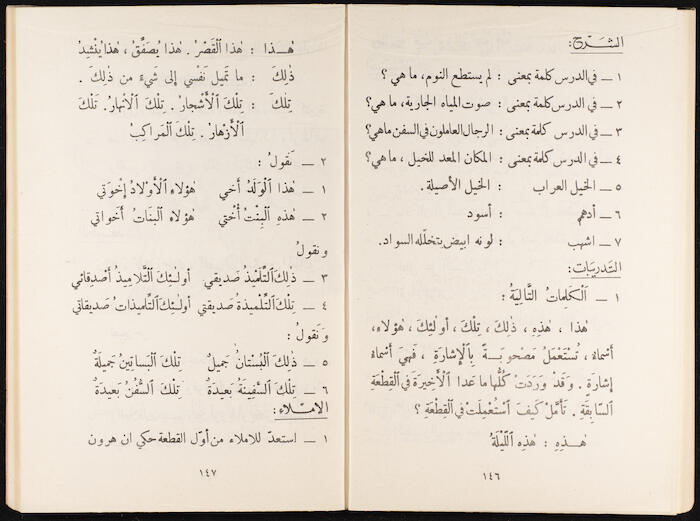 الشَّرْح:
١ — في الدرس كلمة بمعنى : لم يستطع النوم، ما هي ؟
٢ — في الدرس كلمة بمعنى : صوت المياه الجارية، ما هي؟
٣ — في الدرس كلمة بمعنى : الرجال العاملون في السفن ما هي؟
٤ — في الدرس كلمة بمعنى : المكان المعد للخيل ، ما هي؟
٥ — الخيل العراب : الخيل الأصيلة.
٦ — أدهم : أسود
٧ — اشهب : لونه ابيض يتخلّله السواد.
التدريبات:
١ — اَلْكَلِمَاتُ التَّالِيَةُ :
هٰذا ، هٰذِهِ ، ذٰلِكَ ، تِلْكَ ، أولٰئِكَ ، هٰؤلاءِ،
أَسْمَاء، تُسْتَعْمَلُ مَصْحوبَةً بِالْإِشارَةِ ، فَهِيَ أَسْمَاءُ
إِشارَةٍ . وَقَدْ وَرَدَتْ كُلُّها ما عَدا الْأَخِيرَةَ في الْقِطْعَةِ
السّابِقَةِ . تَأَمَّلْ كَيْفَ اسْتُعْمِلَتْ في الْقِطْعَةِ ؟
هٰـذِهِ : هٰذِهِ اللَّيْلَةُ
١٤٦
هٰـذا : هٰذا الْقَصْرُ . هٰذا يُصَفِّقُ ، هٰذا يُنْشِدُ
ذٰلِكَ : ما تَمِيل نَفْسي إلى شَيْءٍ من ذٰلِكَ .
تِلْكَ : تِلْكَ الْأَشْجارُ . تِلْكَ الْأَنْهارُ. تِلْكَ
الْأَزْهارُ . تِلْكَ الْمَراكِبُ
٢ — نَقولُ :
١ — هٰذا الْوَلَدُ أَخي هٰؤلاءِ الْأَوْلادُ إِخْوَتي
٢ — هٰذِهِ الْبِنْتُ أُخْتي هٰؤلاءِ الْبَناتُ أَخَواتي
ونقولُ
٣ — ذٰلِكَ التِّلْمِيذُ صَديقي أولٰـئِكَ التَّلاميذُ أَصْدِقائي
٤ — تِلْكَ التِّلْميذَةُ صَديقَتي أولٰـئِكَ التِّلميذاتُ صَديقاتي
وَنَقولُ:
٥ — ذٰلِكَ الْبُسْتانُ جَميلٌ تِلْكَ الْبَساتينُ جَميلَةٌ
٦ — تِلْكَ السَّفينَةُ بَعيدَةٌ تِلْكَ السُّفُنُ بَعيدَةٌ
الامْلاء:
١ — استعدّ للاملاء من أوّل القطعة حكي ان هرون
١٤٧